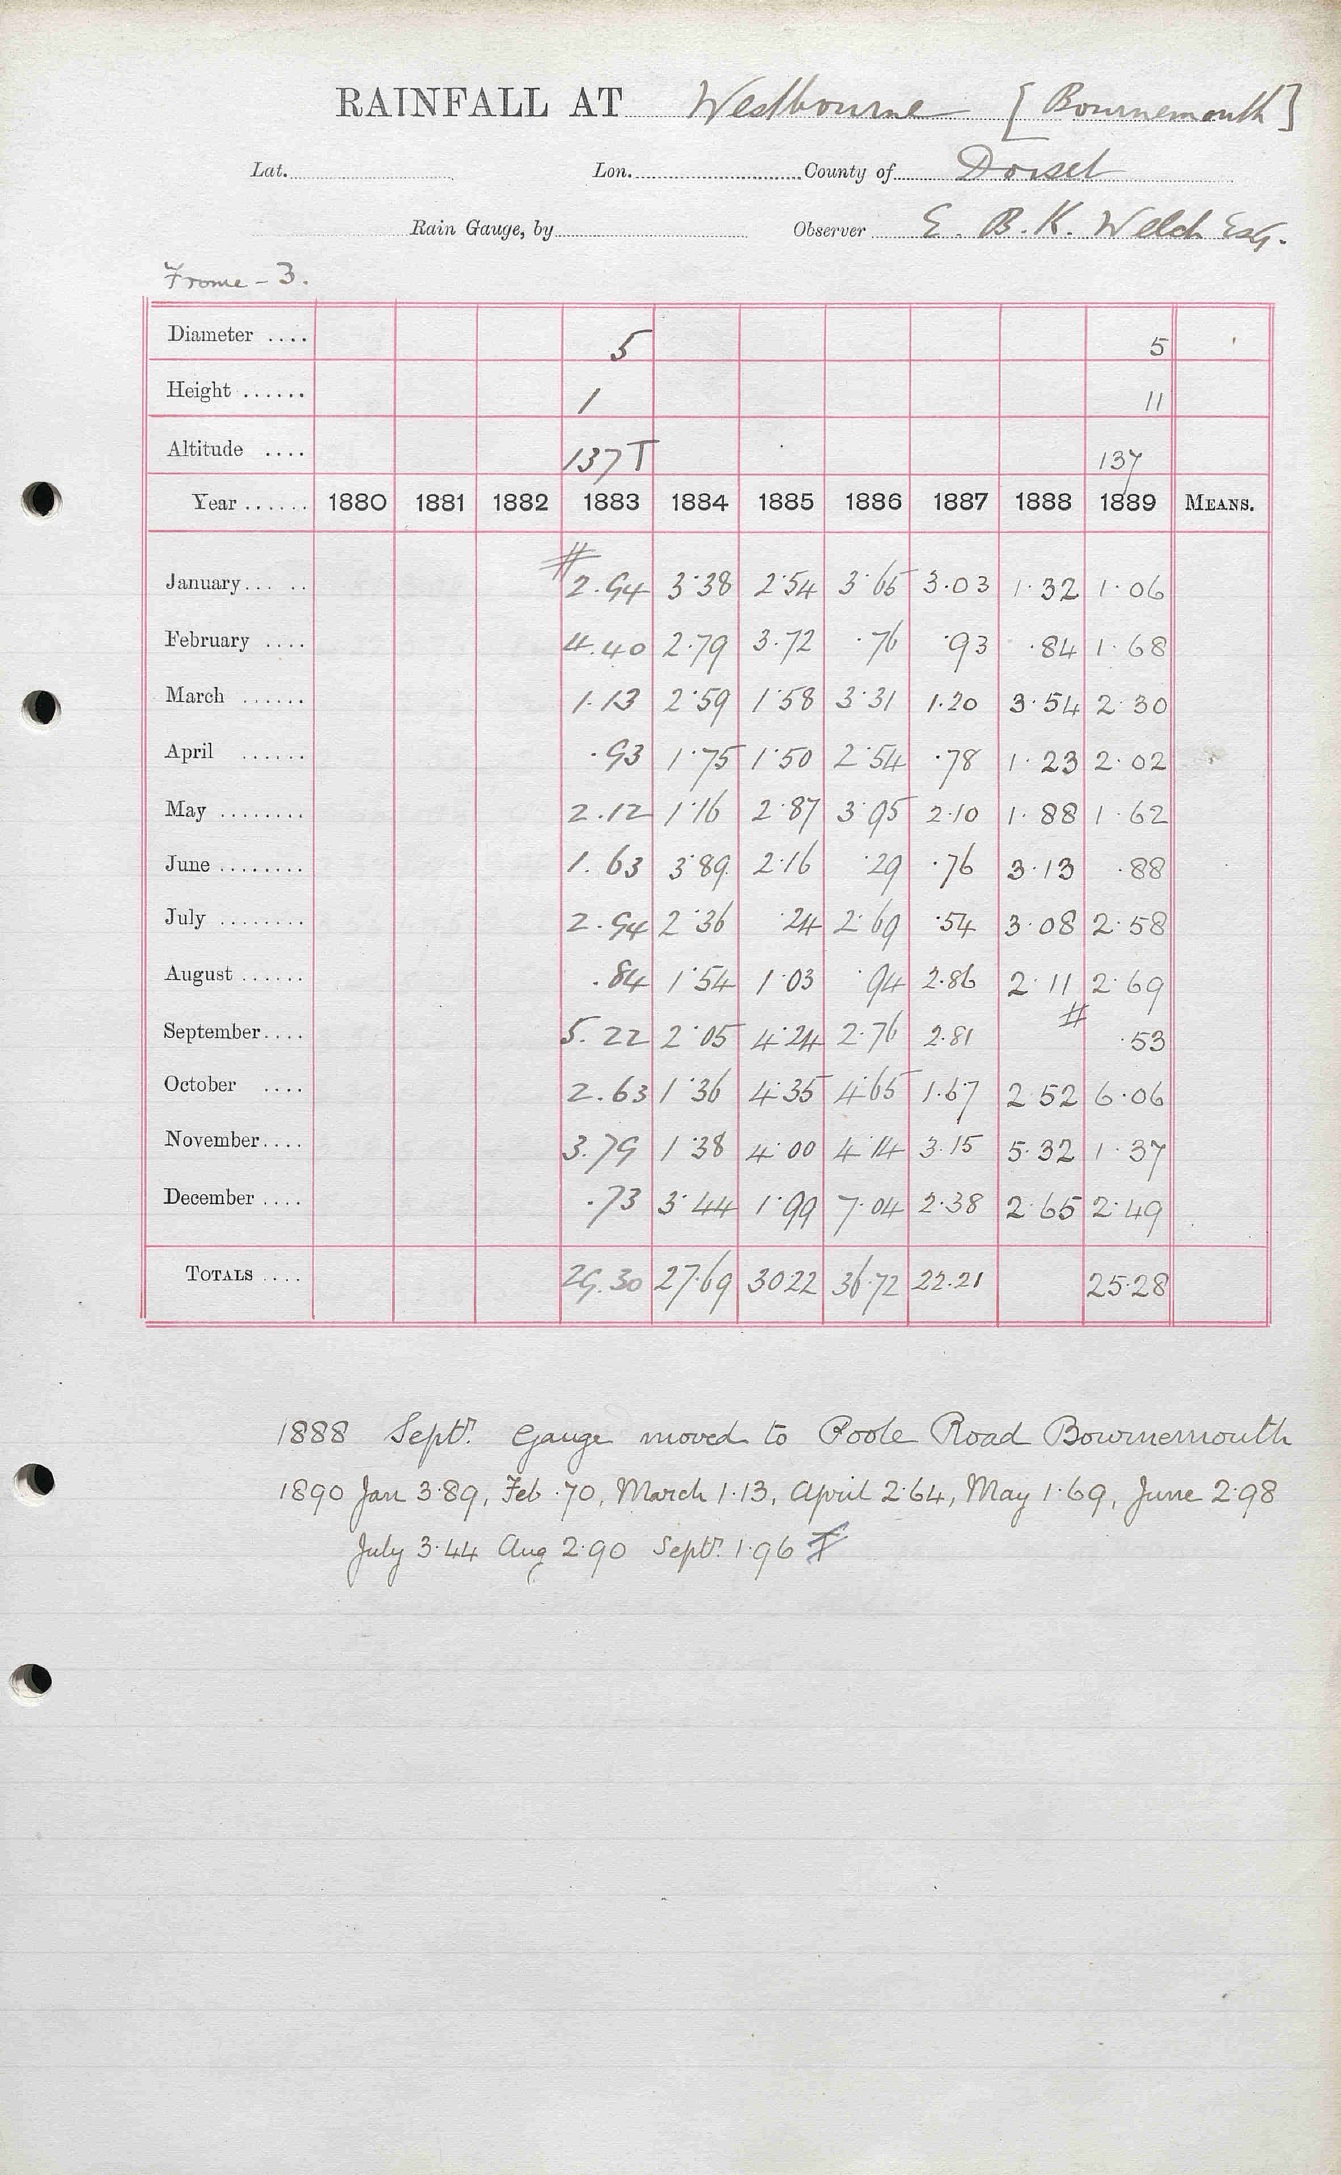 RAINFALL AT Westbourne [Bournemouth]
Lat. Lon. County of Dorset
Rain Gauge, by Observer E. B. K. Welch Esq.
Frome - 3.
Diameter .... 5 5
Height ...... 1 11
Altitude .... 137 T 137
Year ...... 1880 1881 1882 1883 1884 1885 1886 1887 1888 1889 MEANS.
January... .. # 2.94 3.38 2.54 3.65 3.03 1.32 1.06
February .... 4.40 2.79 3.72 .76 .93 .84 1.68
March ...... 1.13 2.59 1.58 3.31 1.20 3.54 2.30
April ...... .93 1.75 1.50 2.54 .78 1.23 2.02
May ........ 2.12 1.16 2.87 3.95 2.10 1.88 1.62
June ........ 1.63 3.89 2.16 .29 .76 3.13 .88
July ........ 2.94 2.36 .24 2.69 .54 3.08 2.58
August ...... .84 1.54 1.03 .94 2.86 2.11 2.69
September.... 5.22 2.05 4.24 2.76 2.81 # .53
October .... 2.63 1.36 4.35 4.65 1.67 2.52 6.06
November.... 3.79 1.38 4.00 4.14 3.15 5.32 1.37
December .... .73 3.44 1.99 7.04 2.38 2.65 2.49
TOTALS .... 29.30 27.69 30.22 36.72 22.21 25.28
1888 Septr. Gauge moved to Poole Road Bournemouth
1890 Jan 3.89, Feb .70, March 1.13, April 2.64, May 1.69, June 2.98
July 3.44 Aug 2.90 Septr. 1.96